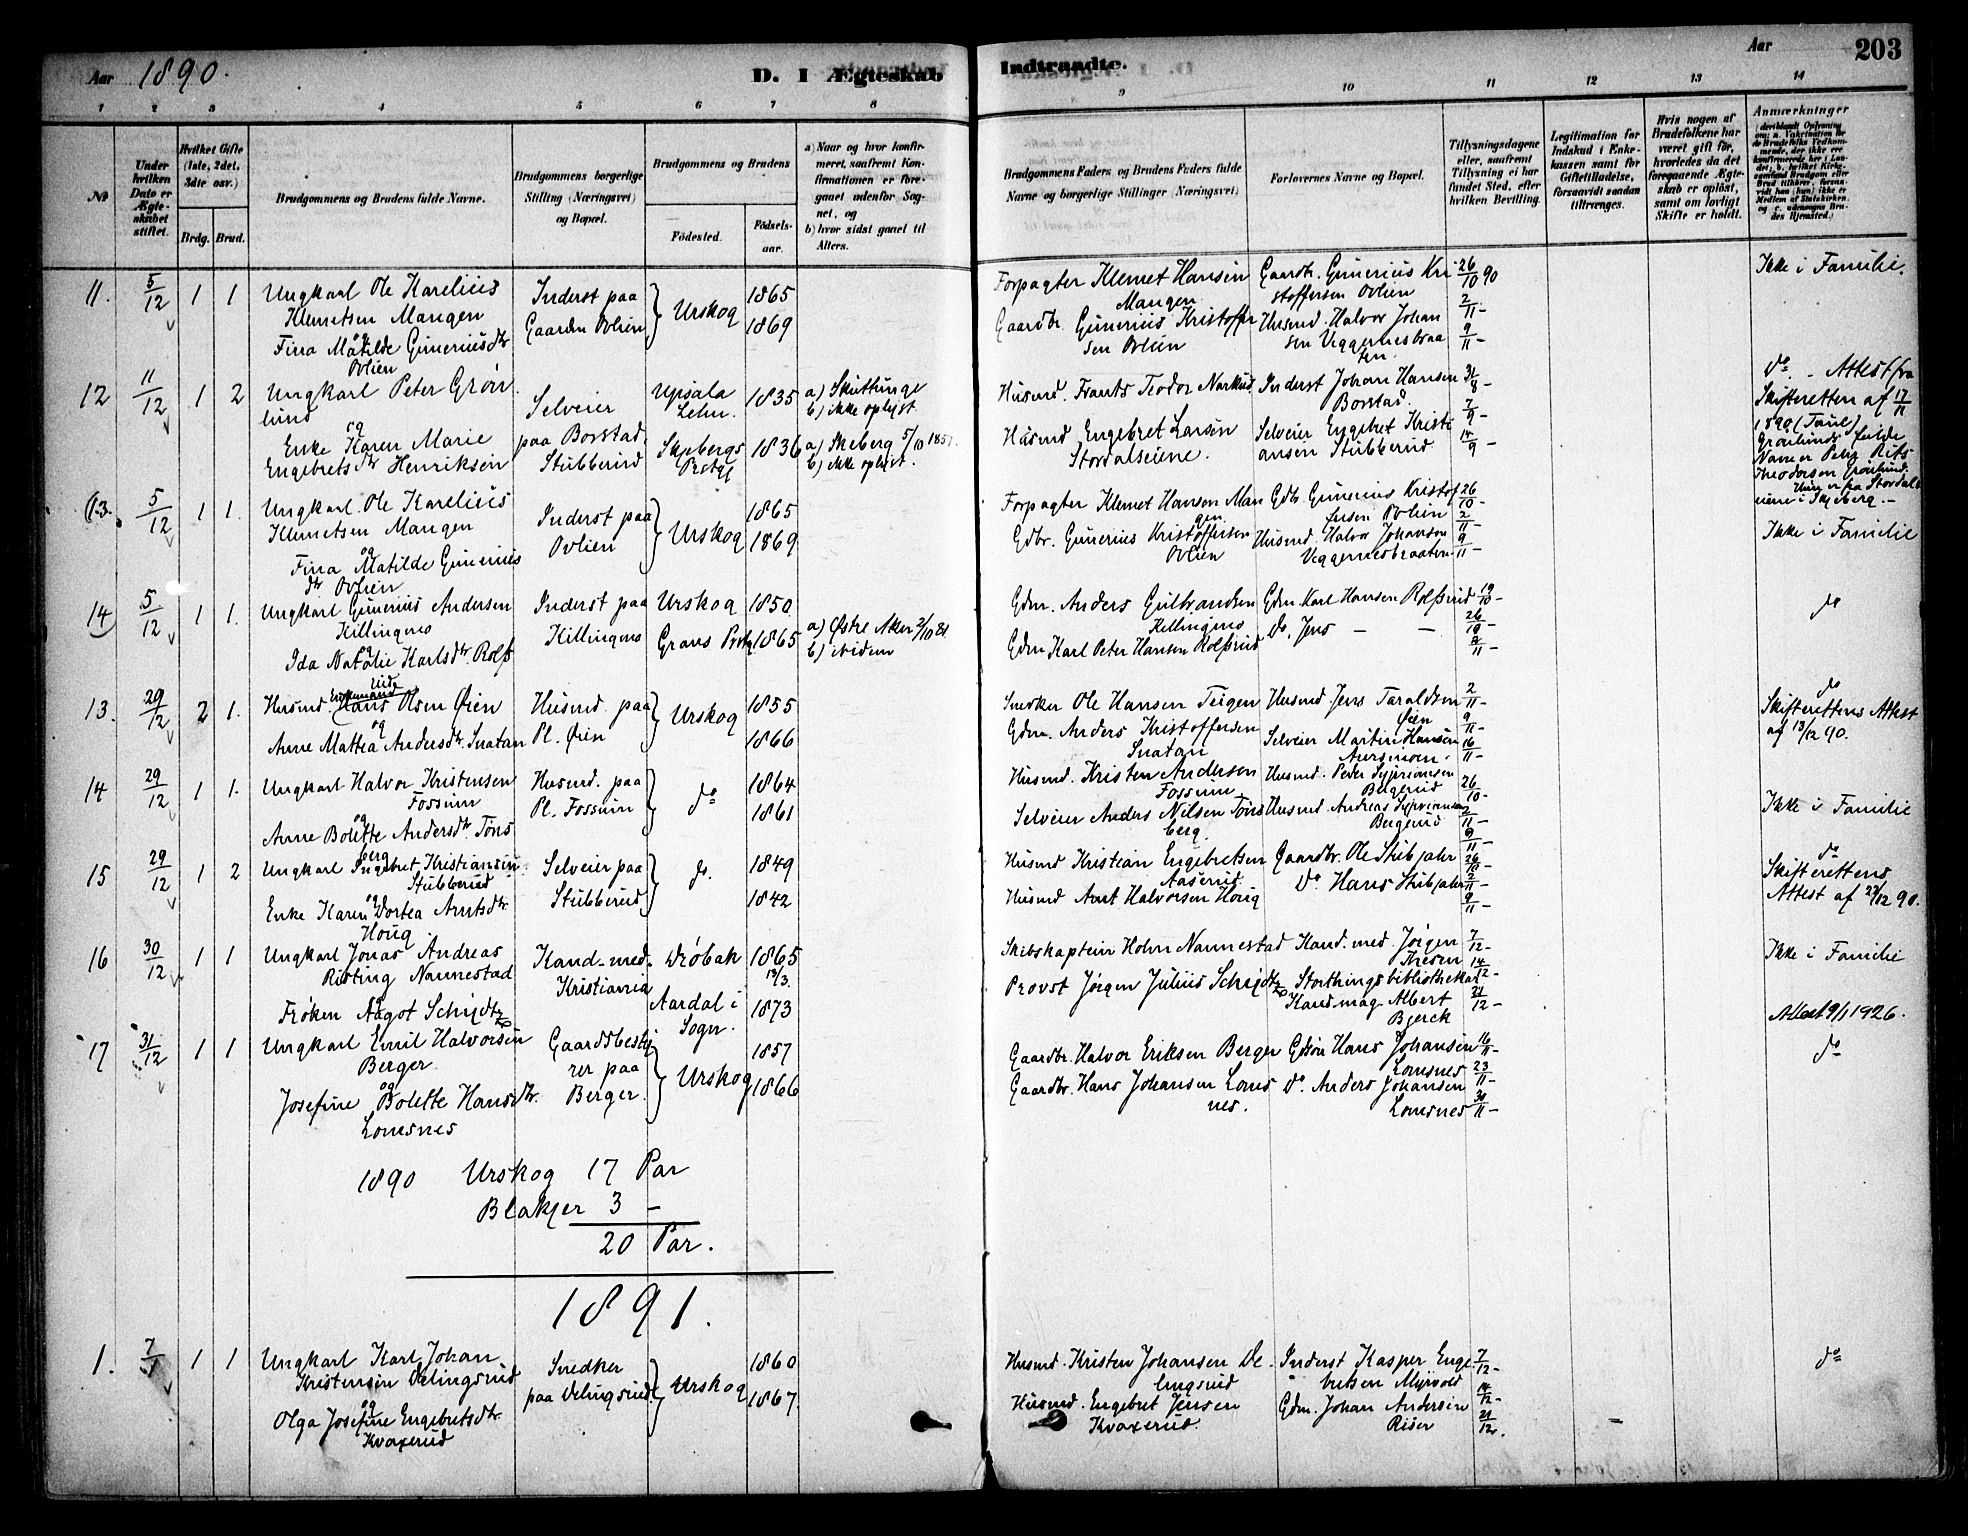 Aar 1890.
D. I Ægteskab
Indtraadte.
Aar
203
1 2 3 4 5 6 7 8 9 10 11 12 13 14
№
Under hvilken Dato er Ægteskabet stiftet.
Hvilket Gifte (1ste, 2det, 3die osv.)
Brdg. Brud.
Brudgommens og Brudens fulde Navne.
Brudgommens borgerlige Stilling (Næringsvei) og Bopæl.
Brudgommens og Brudens
Födested.
Födselsaar.
a) Naar og hvor konfirmeret, saafremt Konfirmationen er foregaaet udenfor Sognet, og
b) hvor sidst gaaet til Alters.
Brudgommens Faders og Brudens Faders fulde Navne og borgerlige Stillinger (Næringsvei)
Forlovernes Navne og Bopæl.
Tillysningsdagene eller, saafremt Tillysning ei har fundet Sted, efter hvilken Bevilling.
Legitimation for Indskud i Enkekassen samt for Giftetilladelse, forsaavidt saadan tiltrænges.
Hvis nogen af Brudefolkene har været gift för, hvorledes da det foregaaende Ægteskab er oplöst, samt om lovligt Skifte er holdt.
Anmærkninger
11. 5/12 1 1
Ungkarl Ole Karelius
Klemetsen Mangen
og
Fina Matilde Guneriusdtr
Ovlien
Inderst paa
Gaarden Ovlien
Urskog
1865
1869
Forpagter Klemet Hansen
Mangen
Gaardbr. Gunerius Kristoffer
sen Ovlien
Gaardbr. Gunerius Kri
stoffersen Ovlien
Husmd. Halvor Johan
sen Veggernesbraa
ten.
26/10 90
2/11 -
9/11 -
Ikke i Familie.
12 11/12 1 2
Ungkarl Peter Grön
lund
og
Enke Karen Marie
Engebretsdtr Henriksen
Selveier
paa Borstad,
Stubberud
Upsala
Lehn.
Skebergs
Prstgj
1835
1836
a) Skuttunge
b) ikke oplyst
a) Skeberg 5/10 185
b) ikke oplyst.
Husmd. Frants Teodor
Husmd Engebret Larsen
Stordalseiene.
Inderst Johan Hansen
Borstad.
Selveier Engebret Kristi
ansen Stubberud
31/8 -
7/9 -
14/9 -
do. - Attest fra
Skifteretten af 17/11
1890
Grönlunds fulde
Navn er Peter
Theodorsen Grönlund.
Hun er fra Stordals
eiene i Skjeberg. -
13. 5/12 1 1.
Ungkarl Ole Karelius
Klemetsen Mangen
og
Fina Matilde Gunerius
dtr Ovlien
Inderst paa
Ovlien
Urskog
1865
1869
Forpagter Klemet Hansen Man
gen
Gdbr. Gunerius Kristoffersen
Ovlien
Gdbr. Gunerius Kristof
fersen Ovlien
Husmd. Halvor Johansen
Veggernesbraaten
26/10 -
2/11 -
9/11 -
Ikke i Familie
14 5/12 1 1.
Ungkarl Gunerius Andersen
Killingmo
og
Ida Natalie Karlsdtr. Rolfs
rud
Inderst paa
Killingmo
Urskog
Grans Prstgj
1850
1865
a) Østre Aker 2/10 81
b) ibidem
Gdm. Anders Gulbrandsen
Killingmo
Gdm Karl Peter Hansen Rolfsrud
Gdm. Karl Hansen Rolfsrud
Do. Jens — —
19/10 -
26/10 -
2/11 -
do
13. 29/12 2 1.
Enkemand
Husmd. Hans Olsen Øien
og
Anne Mattea Andersdtr. Snatan
Husmd. paa
Pl. Øien
Urskog
1855
1866
Snedker Ole Hansen Teigen
Gdm. Anders Kristoffersen
Snatan
Husmd. Jens Taraldsen
Øien
Selveier Martin Hansen
Aursmoen.
2/11 -
9/11 -
16/11 -
do
Skifterettens Attest
af 13/12 90.
14 29/12 1 1.
Ungkarl Halvor Kristensen
Fossum
og
Anne Bolette Andersdtr. Töns
berg
Husmd. paa
Pl. Fossum
do
1864
1861
Husmd. Kristen Andersen
Fossum
Selveier Anders Nilsen Töns
berg
Husmd. Peder Syprianssen
Bergerud
Husmd. Andreas Syprianssen
Bergerud
26/10 -
2/11 -
9/11 -
Ikke i Familie
15 29/12 1 2
Ungkarl Ingebret Kristiansen
Stubberud
og
Enke Karen Dortea Arntsdtr.
Houg
Selveier paa
Stubberud
do.
1849
1842
Husmd Kristian Engebretsen
Aaserud
Husmd Arnt Halvorsen Houg
Gaardbr. Ole Stubjaler
Do. Hans Stubjaler
26/10 -
2/11 -
9/11 -
do
Skifterettens
Attest af 22/12 90.
16 30/12 1 1
Ungkarl Jonas Andreas
Risting Nannestad
og
Frøken Aagot Schydtz
Kand. med.
Kristiania
Dröbak
Aardal i
Sogn.
1865
13/3.
1873
Skibskaptein Holm Nannestad
Provst Jörgen Julius Schydtz
Kand. med. Jörgen
Thesen
Storthingsbibliothekar
Kand. mag. Albert
Bjerck
7/12 -
14/12 -
21/12 -
Ikke i Familie
Attest 9/1 1926.
17 31/12 1 1
Ungkarl Emil Halvorsen
Berger
og
Josefine Bolette Hansdtr.
Lomsnes
Gaardsbesty
rer paa
Berger.
Urskog
1857
1866
Gaardbr. Halvor Eriksen Berger
Gaardbr. Hans Johansen Loms
nes.
Gdsön Hans Johansen
Lomsnes
Do. Anders Johansen
Lomsnes
16/11 -
23/11 -
30/11 -
do
1890 Urskog 17 Par
Blakjer 3 —
20 Par.
1891.
1. 7/1 1 1
Ungkarl Karl Johan
Kristensen Delingsrud
og
Olga Josefine Engebretsdtr.
Kvaxerud
Snedker
paa Delingsrud.
Urskog
1860
1867.
Husmd. Kristen Johansen De
lingsrud
Husmd. Engebret Jensen
Kvaxerud.
Inderst Kasper Enge
bretsen Myrvold
Gdm. Johan Andersen
Riser
7/12 -
14/12 -
21/12.
do